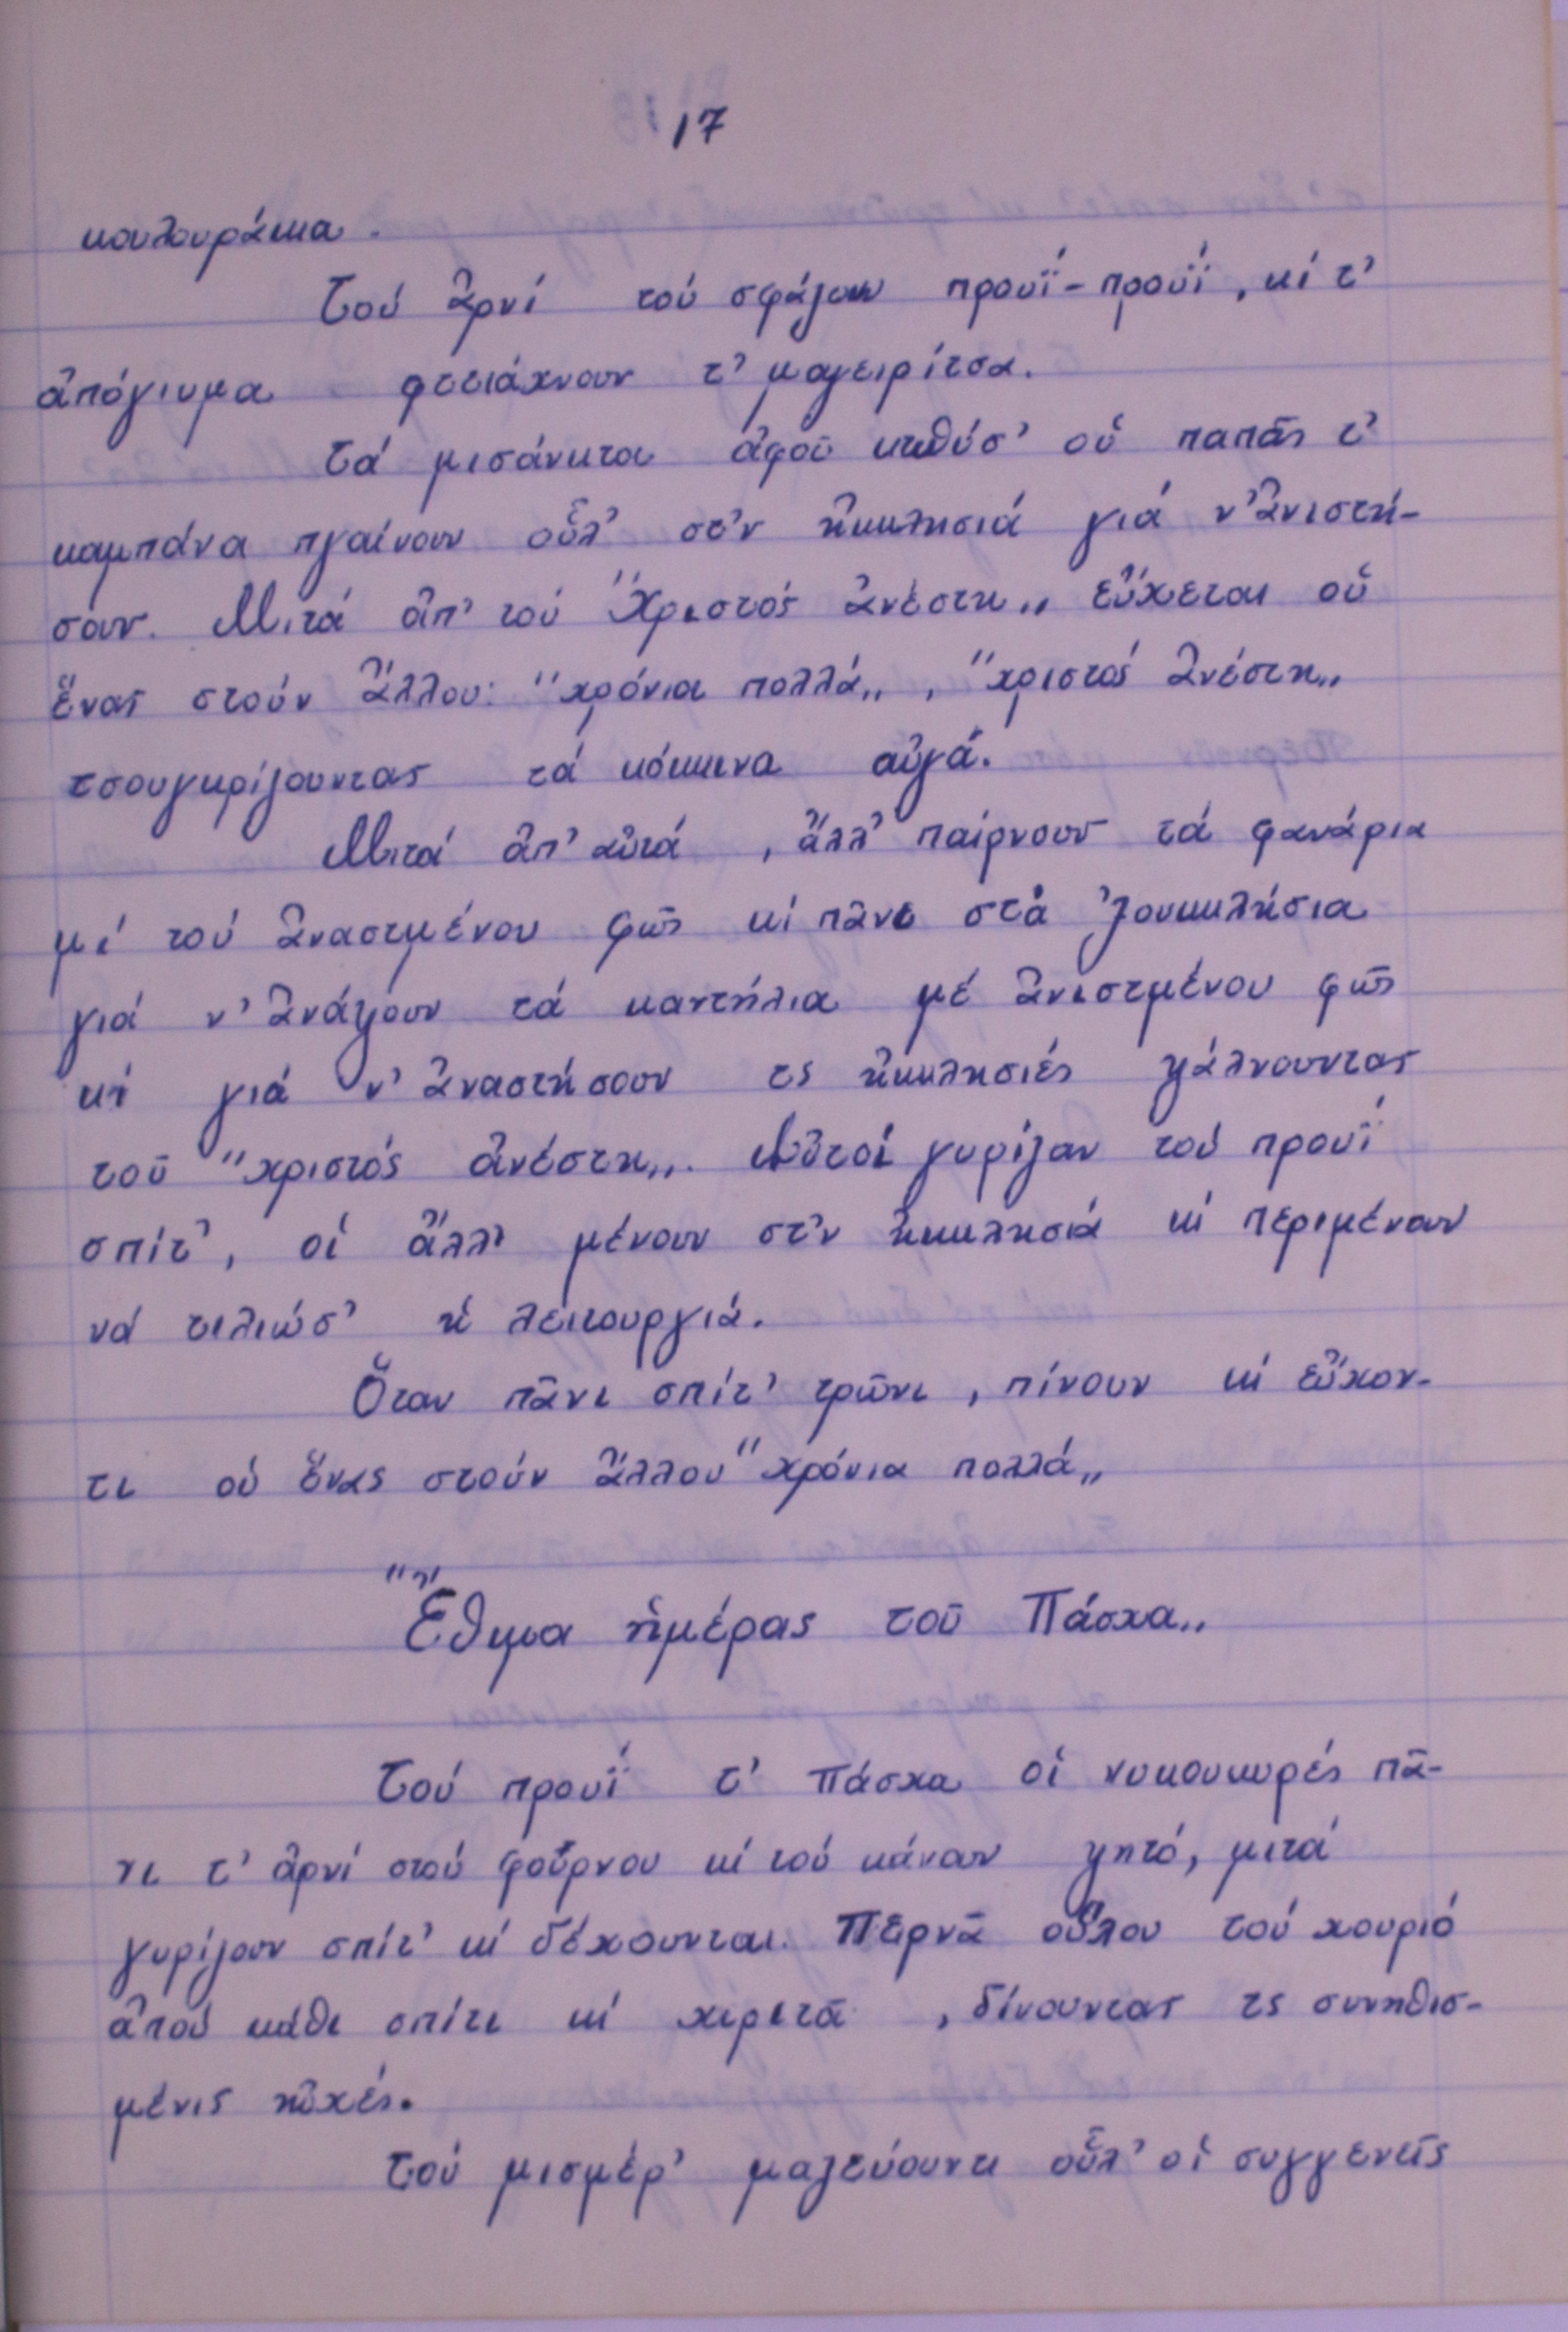 17
κουλουράκια.
Τού ἀρνί τού σφάζουν προυΐ-προυΐ, κί τ'
ἀπόγιυμα φτειάχνουν τ' μαγειρίτσα.
Τά μισάνυχτα ἀφοῦ κτυπήσ' οὑ παπᾶς τ'
καμπάνα πγαίνουν οὗλ' στ'ν ἠκκλησιά γιά ν'ἀνιστή-
σουν. Μιτά ἀπ' τού "Χριστός ἀνέστη„ εὔχεται οὑ
ἕνας στούν ἄλλου: "χρόνια πολλά„, "χριστός ἀνέστη„
τσουγκρίζουντας τά κόκκινα αὐγά.
Μιτά ἀπ' αὐτά, ἄλλ' παίρνουν τά φανάρια
μί τού ἀναστμένου φῶς κί πᾶνε στά 'ξουκκλήσια
γιά ν' ἀνάψουν τά καντήλια μέ ἀνιστμένου φῶς
κί γιά ν' ἀναστήσουν τς ἠκκλησιές ψάλνουντας
τοῦ "χριστός ἀνέστη„. Αὐτοί γυρίζαν τού προυΐ
σπίτ', οἱ ἄλλ' μένουν στ'ν ἠκκλησιά κί περιμένουν
νά τιλιώσ' ἡ λειτουργιά.
Ὅταν πᾶνι σπίτ' τρῶνι, πίνουν κί εὔχον-
τι οὑ ἕνας στούν ἄλλου "χρόνια πολλά„
"Ἔθιμα ἡμέρας τοῦ Πάσχα„
Τού προυΐ τ' Πάσχα οἱ νυκουκυρές πᾶ-
νι τ' ἀρνί στού φοῦρνου κί τού κάνουν ψητό, μιτά
γυρίζουν σπίτ' κί δέχουνται. Περνᾶ οὗλου τού χουριό
ἀπού κάθι σπίτι κί χιριτᾶ, δίνουντας τς συνηθισ-
μένις ηὐχές.
Τού μισμέρ' μαζεύουντι οὗλ' οἱ συγγενεῖς